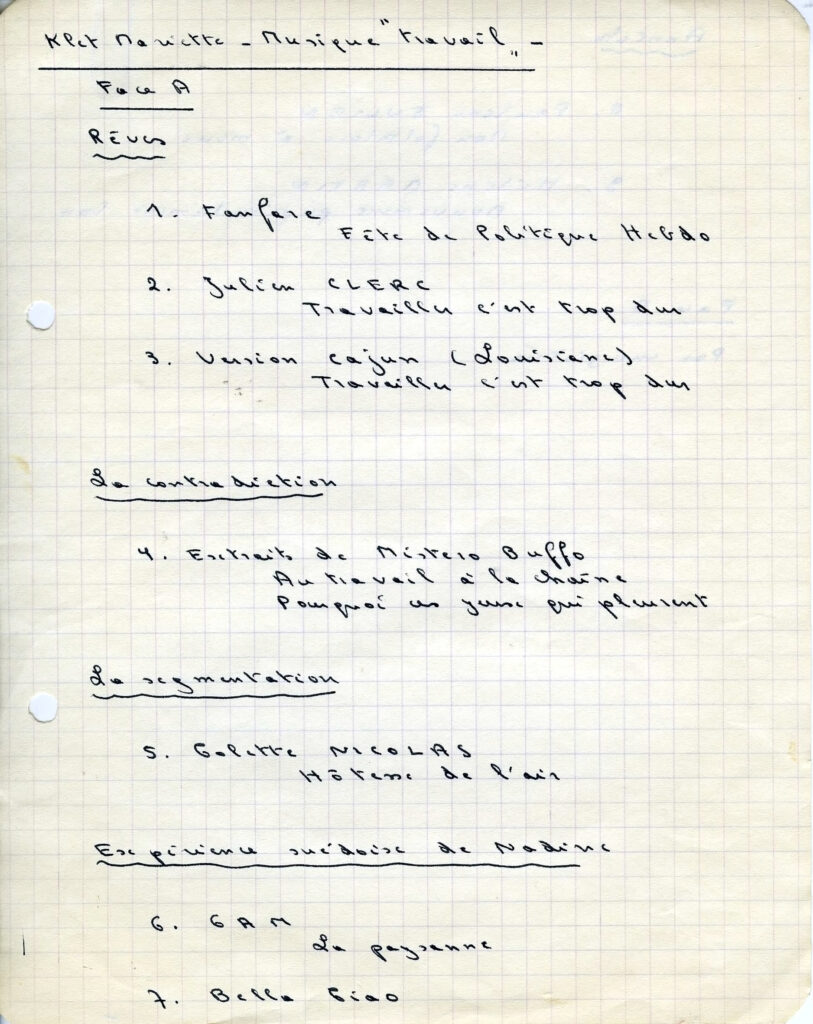 Klet Mariette - Musique "travail" -
Face A
Rêves
1. Fanfare
Fête de Politique Hebdo
2. Julien CLERC
Travailler c'est trop dur
3. Version cajun (Louisiane)
Travailler c'est trop dur
La contradiction
4. Extraits de Mistero Buffo
Au travail à la chaîne
Pourquoi ces yeux qui pleurent
La segmentation
5. Colette NICOLAS
Hôtesse de l'air
Expérience suédoise de Nadine
6. GAM
La paysanne
7. Bella Ciao